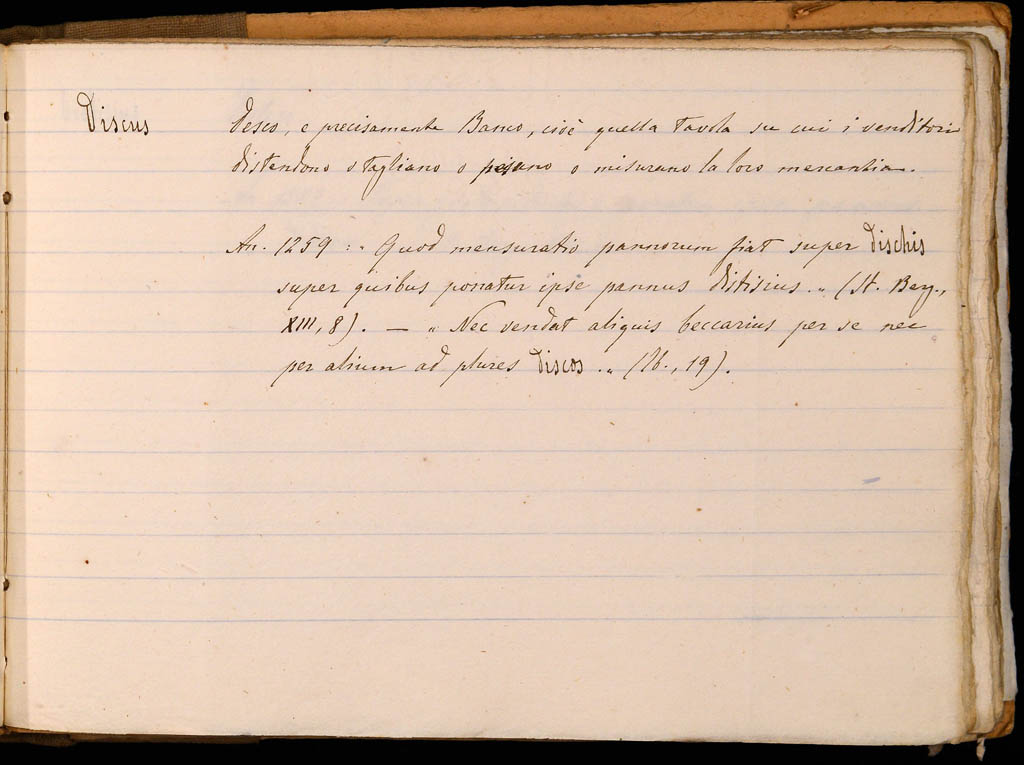 Discus Desco, e precisamente Banco, cioè quella tavola su cui i venditori
distendono o tagliano o pesano o misurano la loro mercantia.
An. 1259 : „ Quod mensuratio pannorum fiat super dischis
super quibus ponatur ipse pannus distisius. „ (St. Berg.,
XIII, 8). — „ Nec vendat aliquis beccarius per se nec
per alium ad plures discos. „ (Ib., 19).